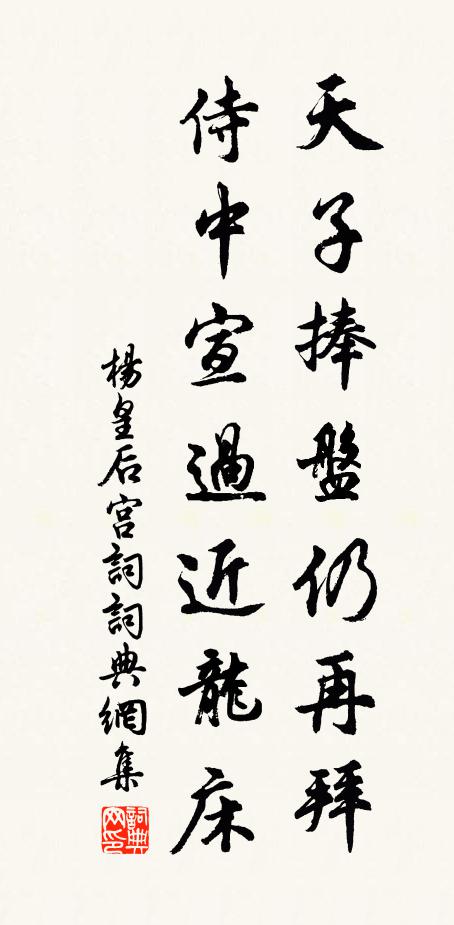 天子捧盤仍再拜
侍中宣過近龍床
楊皇后宮詞詞典網集
詞典网印